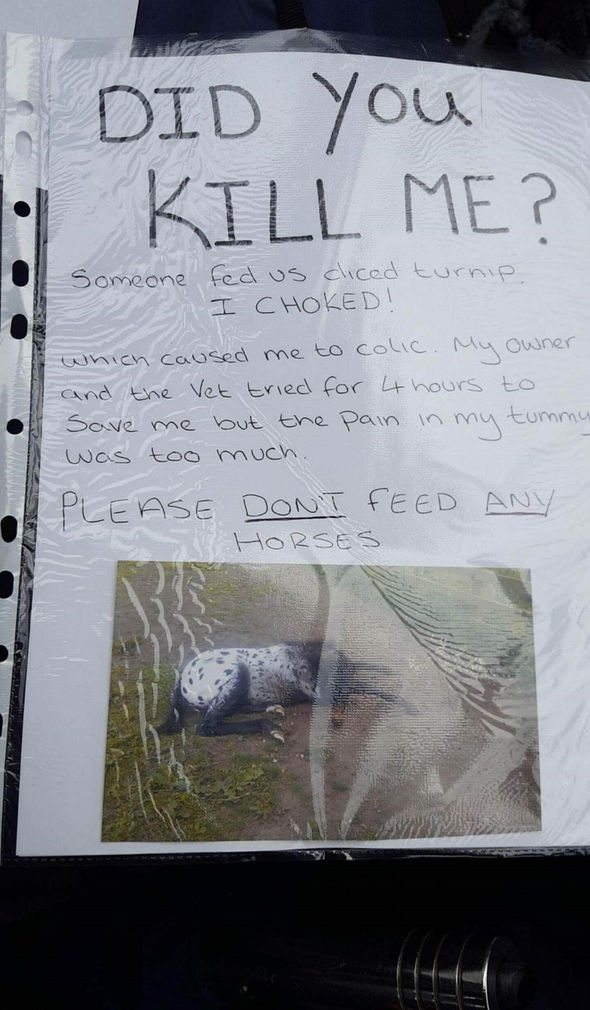 DID YOU
KILL ME?
Someone fed us diced turnip.
I CHOKED!
which caused me to colic. My owner
and the Vet tried for 4 hours to
Save me but the Pain in my tummy
was too much.
PLEASE DON'T FEED ANY
HORSES